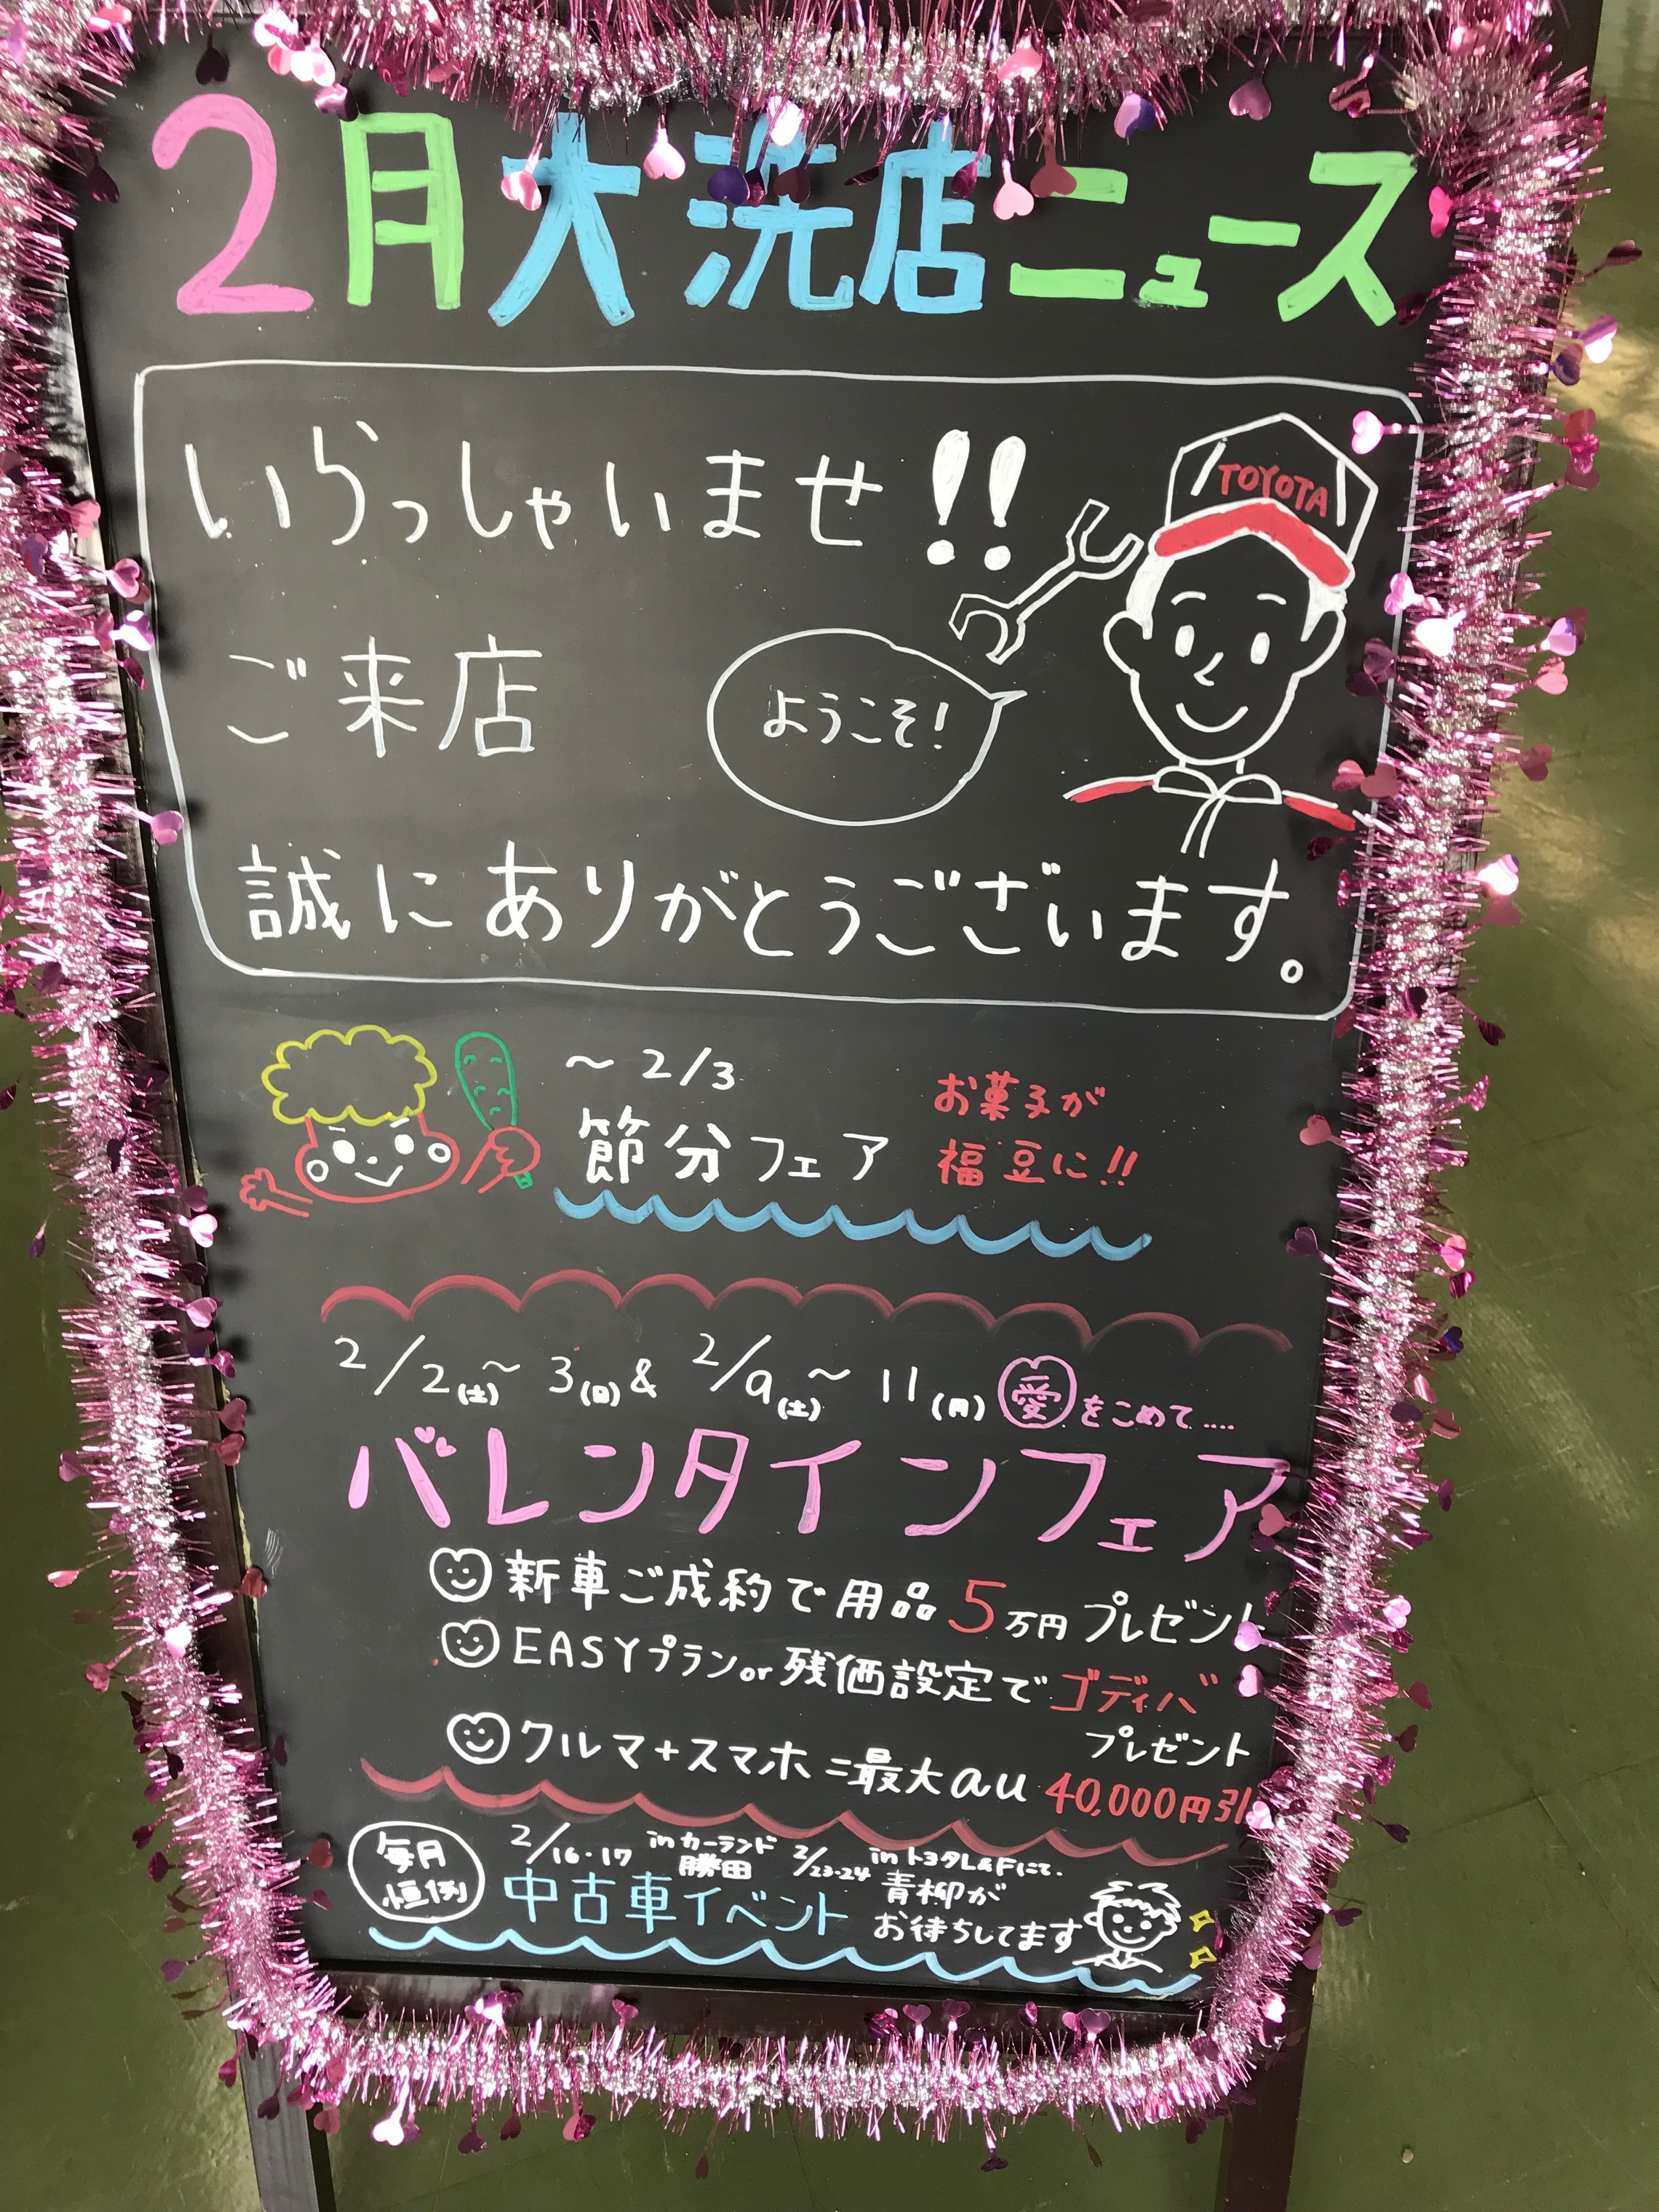 2月大洗店ニュース
いらっしゃいませ!!
TOYOTA
ご来店
ようこそ!
誠にありがとうございます。
～2/3
節分フェア
お菓子が
福豆に!!
2/2(土)～3(日)&2/9(土)～11(月)愛をこめて....
バレンタインフェア
新車ご成約で用品5万円プレゼント
EASYプランor残価設定でゴディバ
プレゼント
クルマ+スマホ=最大au40,000円引
毎月
恒例
2/16・17 inカーランド
勝田
中古車イベント
2/23・24 inトヨタL&Fにて.
青柳が
お待ちしてます